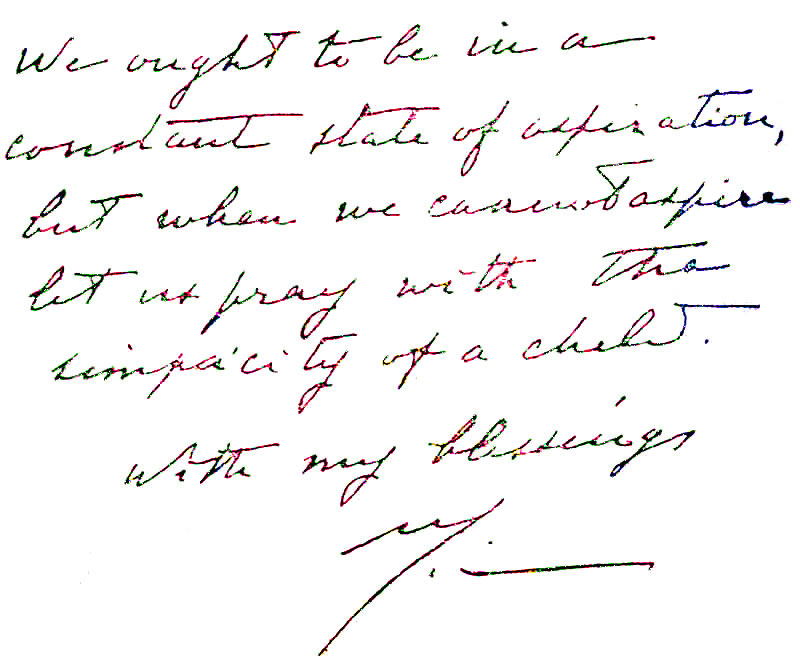 We ought to be in a
constant state of aspiration,
but when we cannot aspire
let us pray with the
simplicity of a child.
With my blessings